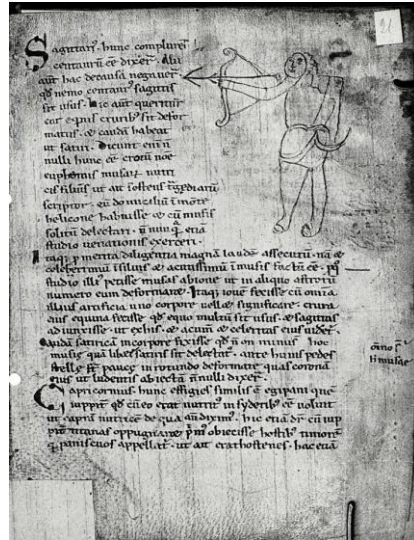 21
Sagittari᷒. hunc complures
centaurū eē dixer̄. Alii
aūt hac de causa negauer̄
qđ nemo centaur᷒ sagittis
sit usus. hic aūt queritur
cur equis cruribus sit defor
matus. & caudā habeat
ut satiri. Dicunt eni n̄
nulli hunc eē crotū noē
euphemes musarū nutri
cis filiū ut ait sosteus tragediarū
scriptor. eū domiciliū ī monte
helicone habuisse & cū musis
solitū delectari. nūnuq̄. etiā
studio uenationis exerceri.
Itaq; p̄ merita diligentia magnā laudē assecutū. nā &
celeberrimū ī siluis & acutissimū ī musis factū eē. pq̄
studio illi᷒ petisse musas ab ioue ut in aliquo astrorū
numero eum deformare. Itaq; ioue fecisse cū omīa
illius artificia uno corpore uellet significare. crura
eius equina fecisse qđ equo multū sit usus. & sagittas
adiunxisse. ut ex his. & acum̄ & celeritas ei᷒ uider̄.
caudā satiricā in corpore fixisse qđ n̄ on minus hoc
musis quā liber satiris sit delectat᷒. ante huius pedes
stelle st̄ pauce in rotundo deformate quas coronā
eius ut ludentis abiectā n̄nulli dixer̄.
Capricornus. huic effigies similis ē egipani quē
iuppit̄ qđ cū eo erat nutrit᷒ in syderib᷒ eē uoluit
ut caprā nutricē de qua an̄ dixim᷒. hic etiā dr̄ cū iup
pit̄ titanas oppugnaret p̄m᷒ obiecisse hostib᷒ timorē
q̄ paniscuos appellat̄. ut ait erathostenes. hac etiā